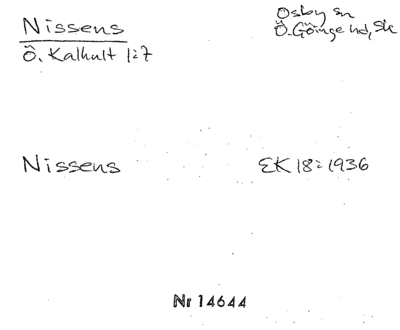 Nissens
Ö. Kalhult 1:7
Osby sn
Ö. Göinge hd, Sk
Nissens
EK 18:1936
Nr 14644